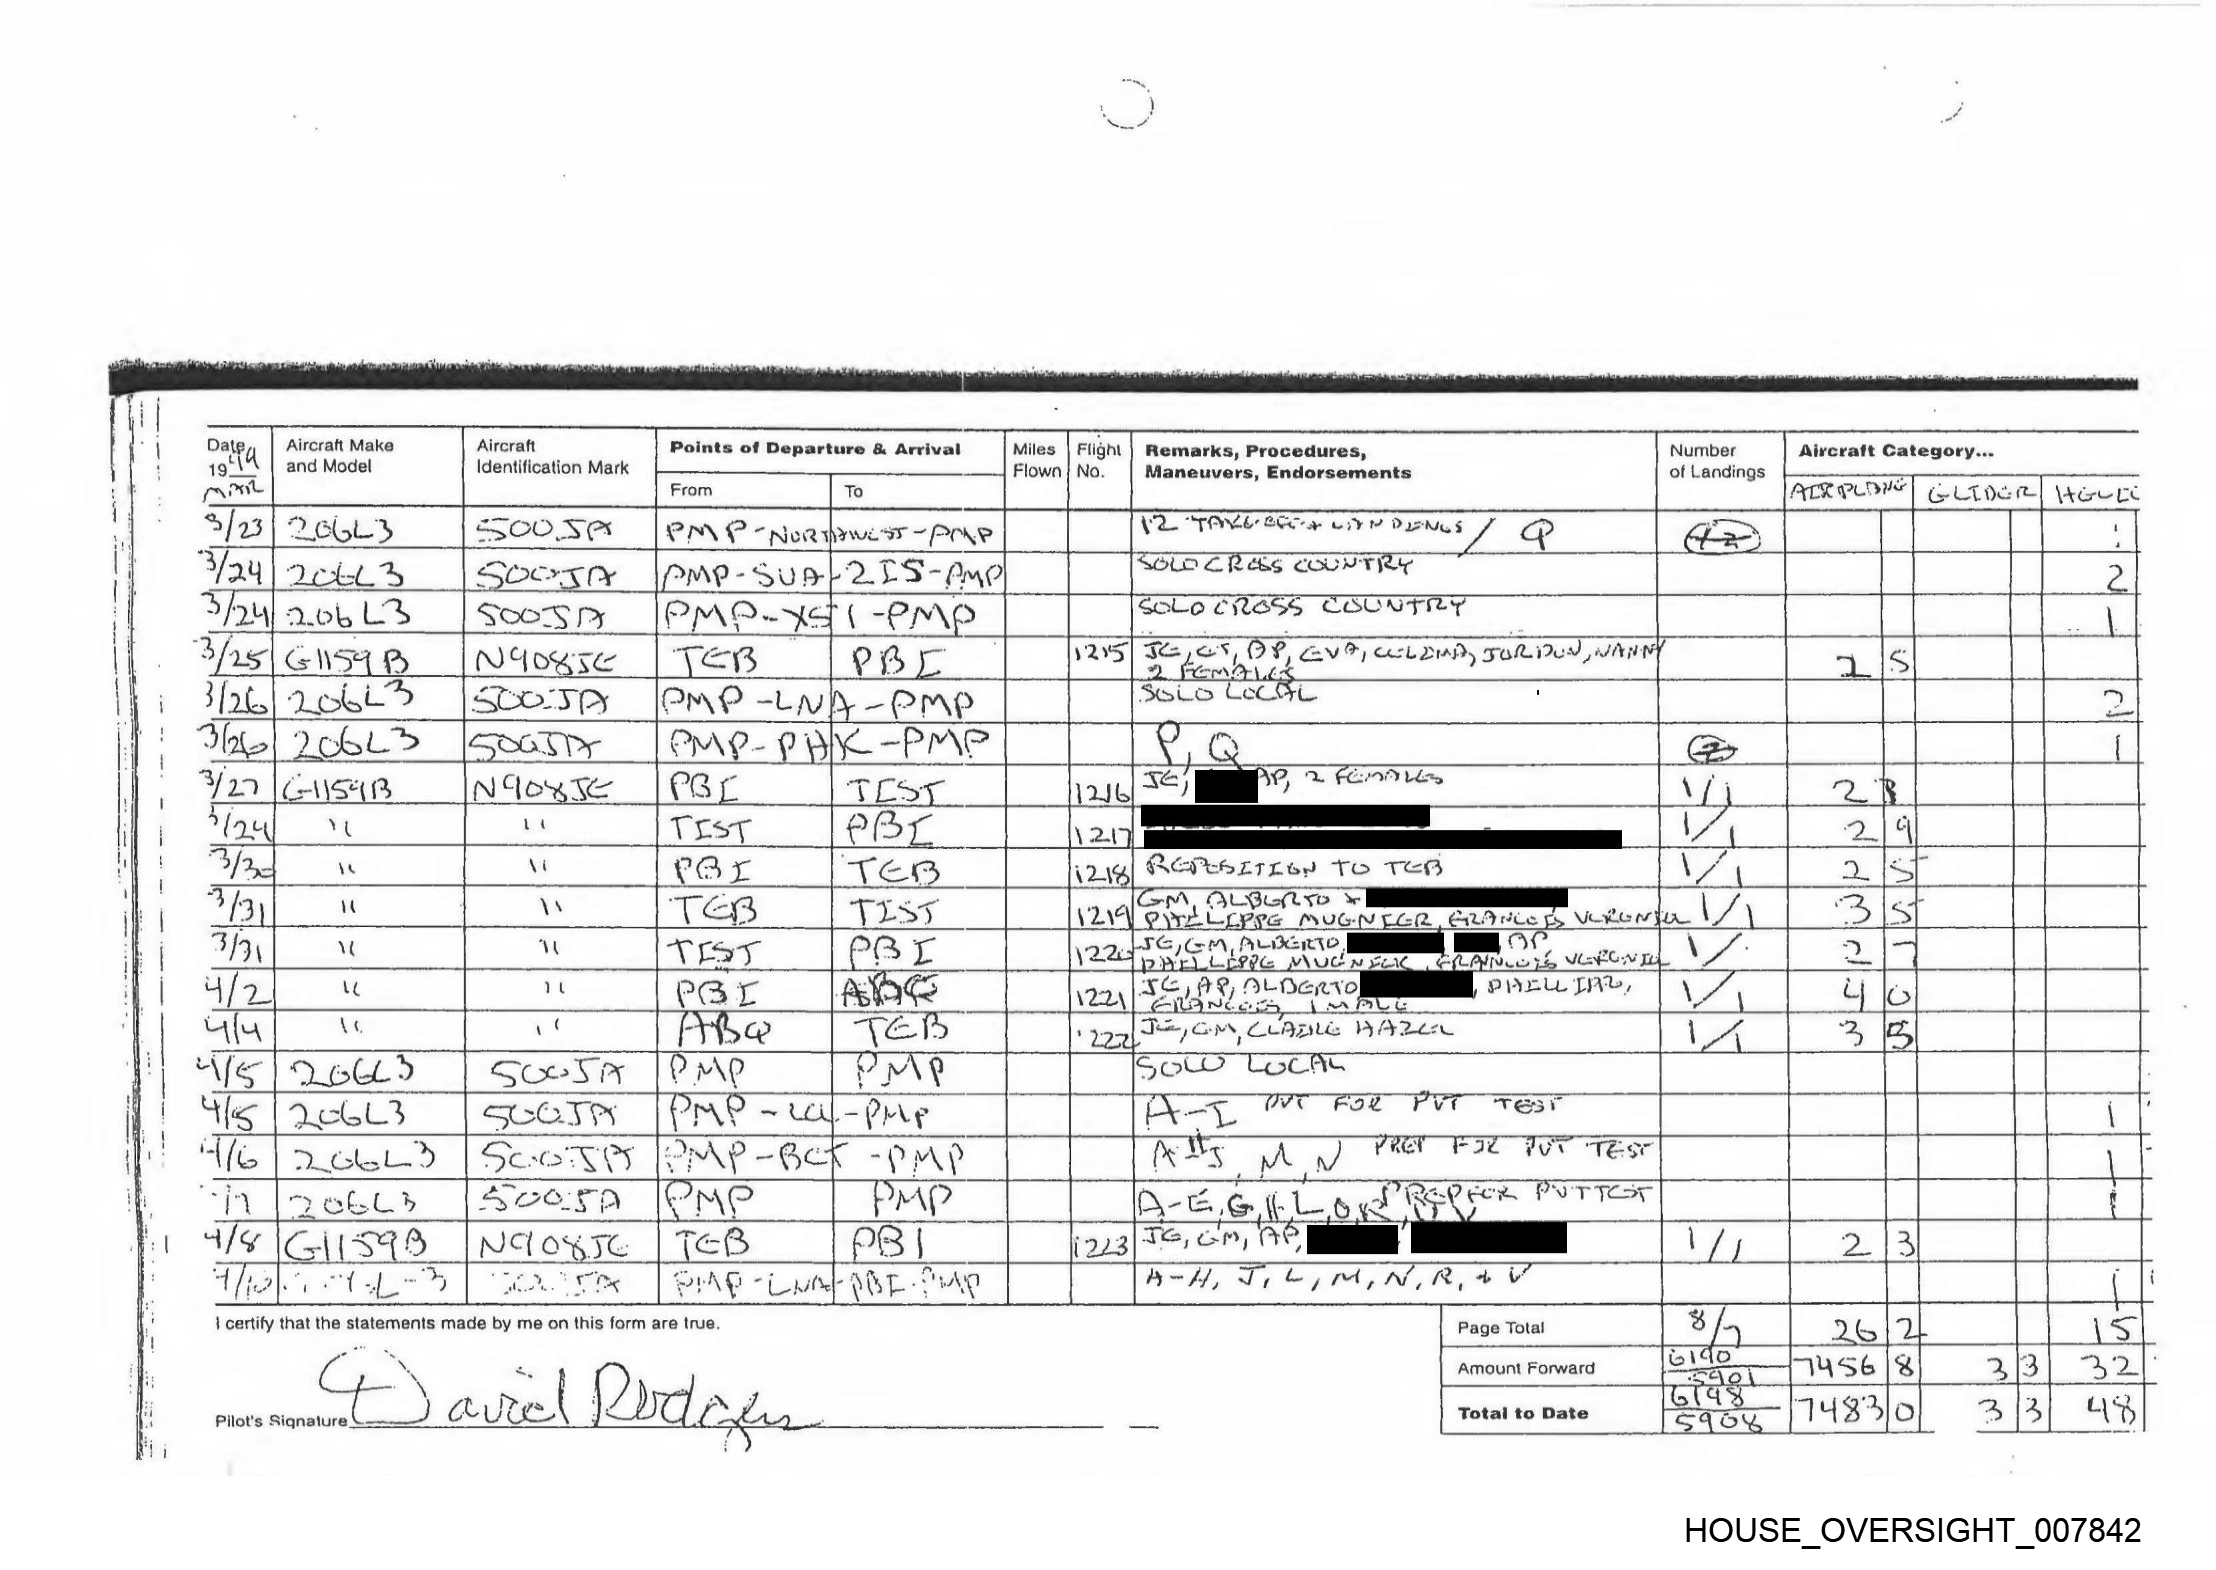 Date 1999 Aircraft Make and Model Aircraft Identification Mark Points of Departure & Arrival Miles Flown Flight No. Remarks, Procedures, Maneuvers, Endorsements Number of Landings Aircraft Category...
MAR From To AIRPLANE GLIDER
3/23 206L3 500JA PMP-NORTHWEST-PMP 12 TAKE-OFF + LANDINGS / Q 12
3/24 206L3 500JA PMP-SUA-2IS-PMP SOLO CROSS COUNTRY 2
3/24 206L3 500JA PMP-X51-PMP SOLO CROSS COUNTRY 1
3/25 G1159B N908JE TEB PBI 1215 JE, ET, AP, EVA, CELINA, JORDAN, NANNY 2 5
2 FEMALES
3/26 206L3 500JA PMP-LNA-PMP SOLO LOCAL 2
3/26 206L3 500JA PMP-PHK-PMP P, Q 2 1
3/27 G1159B N908JE PBI TIST 1216 JE, AP, 2 FEMALES 1/1 2 8
3/29 " " TIST PBI 1217 1/1 2 9
3/30 " " PBI TEB 1218 REPOSITION TO TEB 1/1 2 5
3/31 " " TEB TIST 1219 GM, ALBERTO + 1/1 3 5
PHILLIPPE MUGNIER, FRANCOIS
3/31 " " TIST PBI 1220 JE, GM, ALBERTO, , AP 1/ 2 7
PHILLIPPE , FRANCOIS
4/2 " " PBI ABQ 1221 JE, AP, ALBERTO , 1/1 4 0
FRANCOIS, 1 MALE
4/4 " " ABQ TEB 1222 JE, GM, CLAIRE HAZEL 1/1 3 5
4/5 206L3 500JA PMP PMP SOLO LOCAL
4/5 206L3 500JA PMP-LCL-PMP A-I FOR PVT TEST 1
4/6 206L3 500JA PMP-BCT-PMP A-J, M, N PREP FOR PVT TEST 1
/7 206L3 500JA PMP PMP A-E, G, H, L, O, PREP FOR PVT TEST 1
4/8 G1159B N908JE TEB PBI 1223 JE, GM, AP, 1/1 2 3
4/10 L-3 PMP-LNA-PBI-PMP A-H, J, L, M, N, R, + V 1
I certify that the statements made by me on this form are true.
Page Total 8/7 26 2 15
Amount Forward 6190 5901 7456 8 3 3 32
Total to Date 6198 5908 7483 0 3 3 48
Pilot's Signature David Rodgers
HOUSE_OVERSIGHT_007842